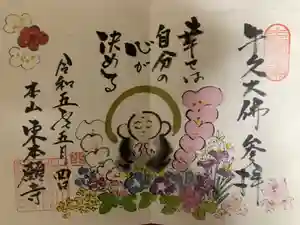 牛久大佛参拝
幸せは
自分の
心が
決める
令和五年五月四日
本山東本願寺